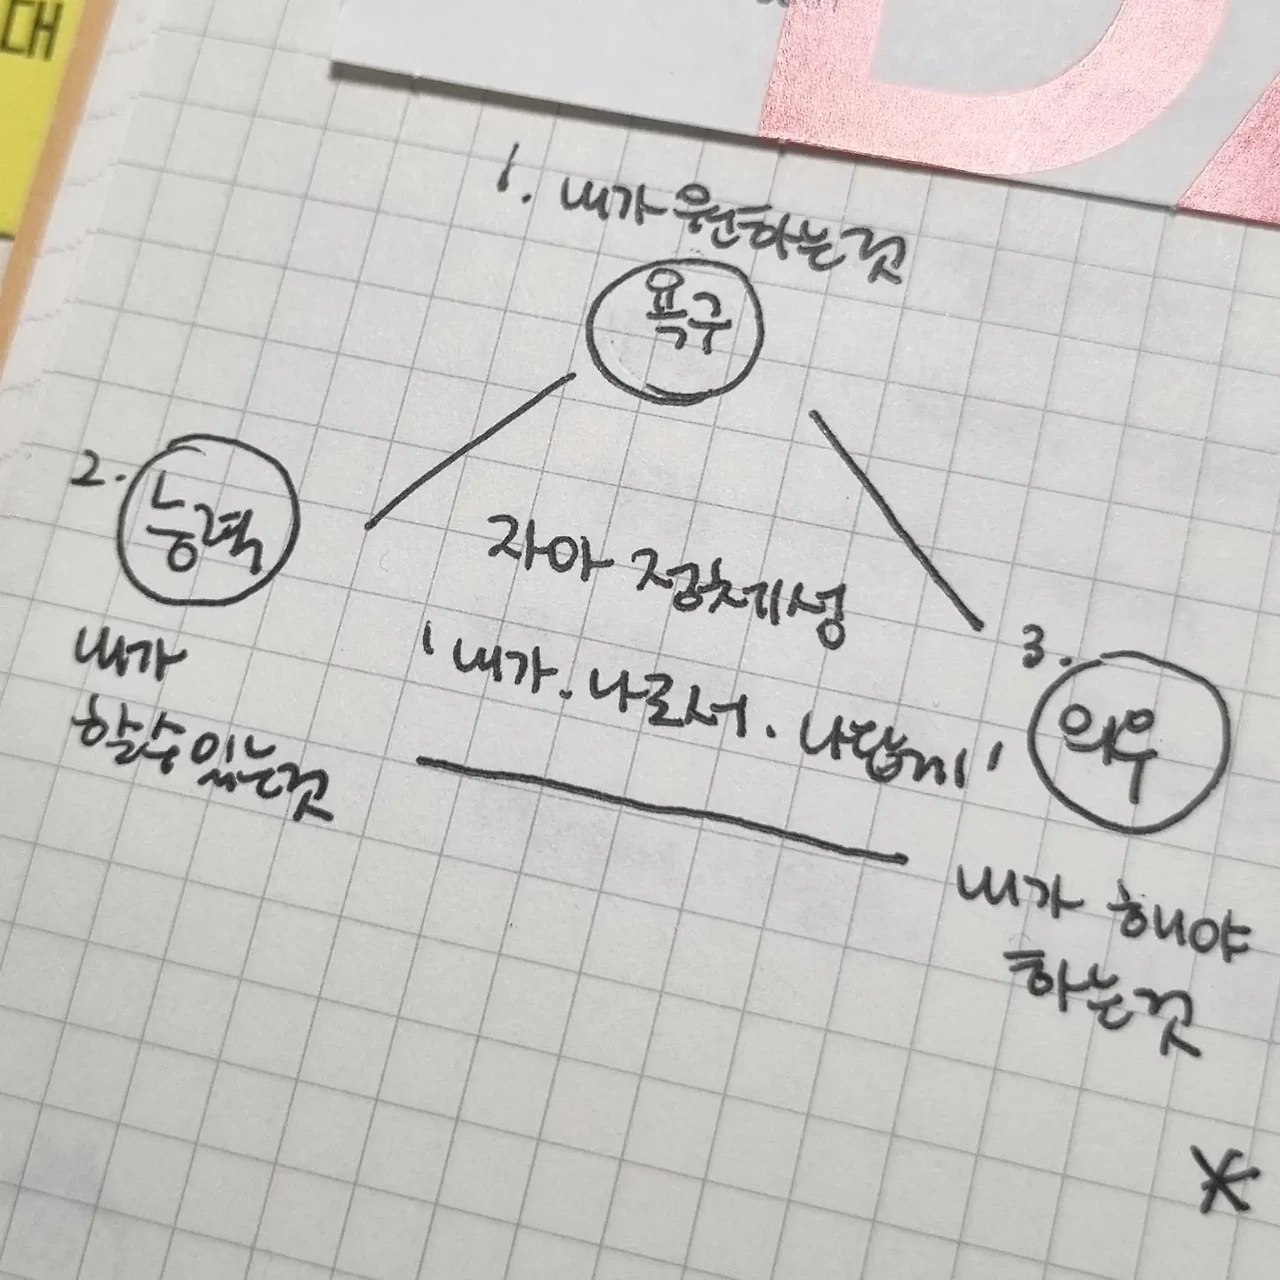 대
1. 내가 원하는것
욕구
2. 능력
내가
할수있는것
자아 정체성
'내가. 나로서. 나답게'
3. 의무
내가 해야
하는것
*